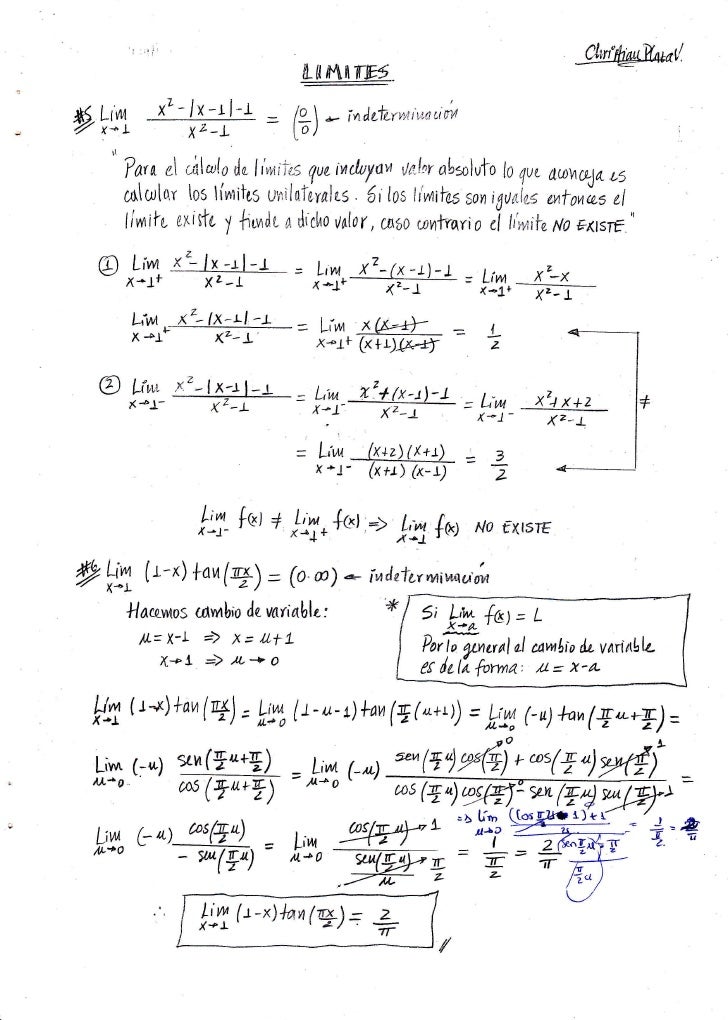 Christian Plaza V.
LIMITES
#5 Lim x→1 (x²-|x-1|-1)/(x²-1) = (0/0) ← indeterminación
"Para el cálculo de límites que incluyan valor absoluto lo que aconceja es
calcular los límites unilaterales. Si los límites son iguales entonces el
límite existe y tiende a dicho valor, caso contrario el límite NO EXISTE."
① Lim x→1⁺ (x²-|x-1|-1)/(x²-1) = Lim x→1⁺ (x²-(x-1)-1)/(x²-1) = Lim x→1⁺ (x²-x)/(x²-1)
Lim x→1⁺ (x²-|x-1|-1)/(x²-1) = Lim x→1⁺ x(x-1)/((x+1)(x-1)) = 1/2
② Lim x→1⁻ (x²-|x-1|-1)/(x²-1) = Lim x→1⁻ (x²+(x-1)-1)/(x²-1) = Lim x→1⁻ (x²+x+2)/(x²-1) ≠
= Lim x→1⁻ (x+2)(x+1)/((x+1)(x-1)) = 3/2
Lim x→1⁻ f(x) ≠ Lim x→1⁺ f(x) ⇒ Lim x→1 f(x) NO EXISTE
#6 Lim x→1 (1-x)tan(πx/2) = (0·∞) ← indeterminación
Hacemos cambio de variable:
μ=x-1 ⇒ x=μ+1
x→1 ⇒ μ→0
* Si Lim x→a f(x) = L
Por lo general el cambio de variable
es de la forma: μ=x-a
Lím x→1 (1-x)tan(πx/2) = Lim μ→0 (1-μ-1)tan(π/2(μ+1)) = Lim μ→0 (-μ)tan(π/2 μ+π/2) =
Lim μ→0 (-μ) sen(π/2 μ+π/2)/cos(π/2 μ+π/2) = Lim μ→0 (-μ) (sen(π/2 μ)cos(π/2)→0 + cos(π/2 μ)sen(π/2)→1)/(cos(π/2 μ)cos(π/2)→0 - sen(π/2 μ)sen(π/2)→1) =
Lim μ→0 (-μ) cos(π/2 μ)/(-sen(π/2 μ)) = Lim μ→0 cos(π/2 μ)→1/(sen(π/2 μ)/μ)→π/2 = 1/(π/2) = 2/π
∴ Lim x→1 (1-x)tan(πx/2) = 2/π //